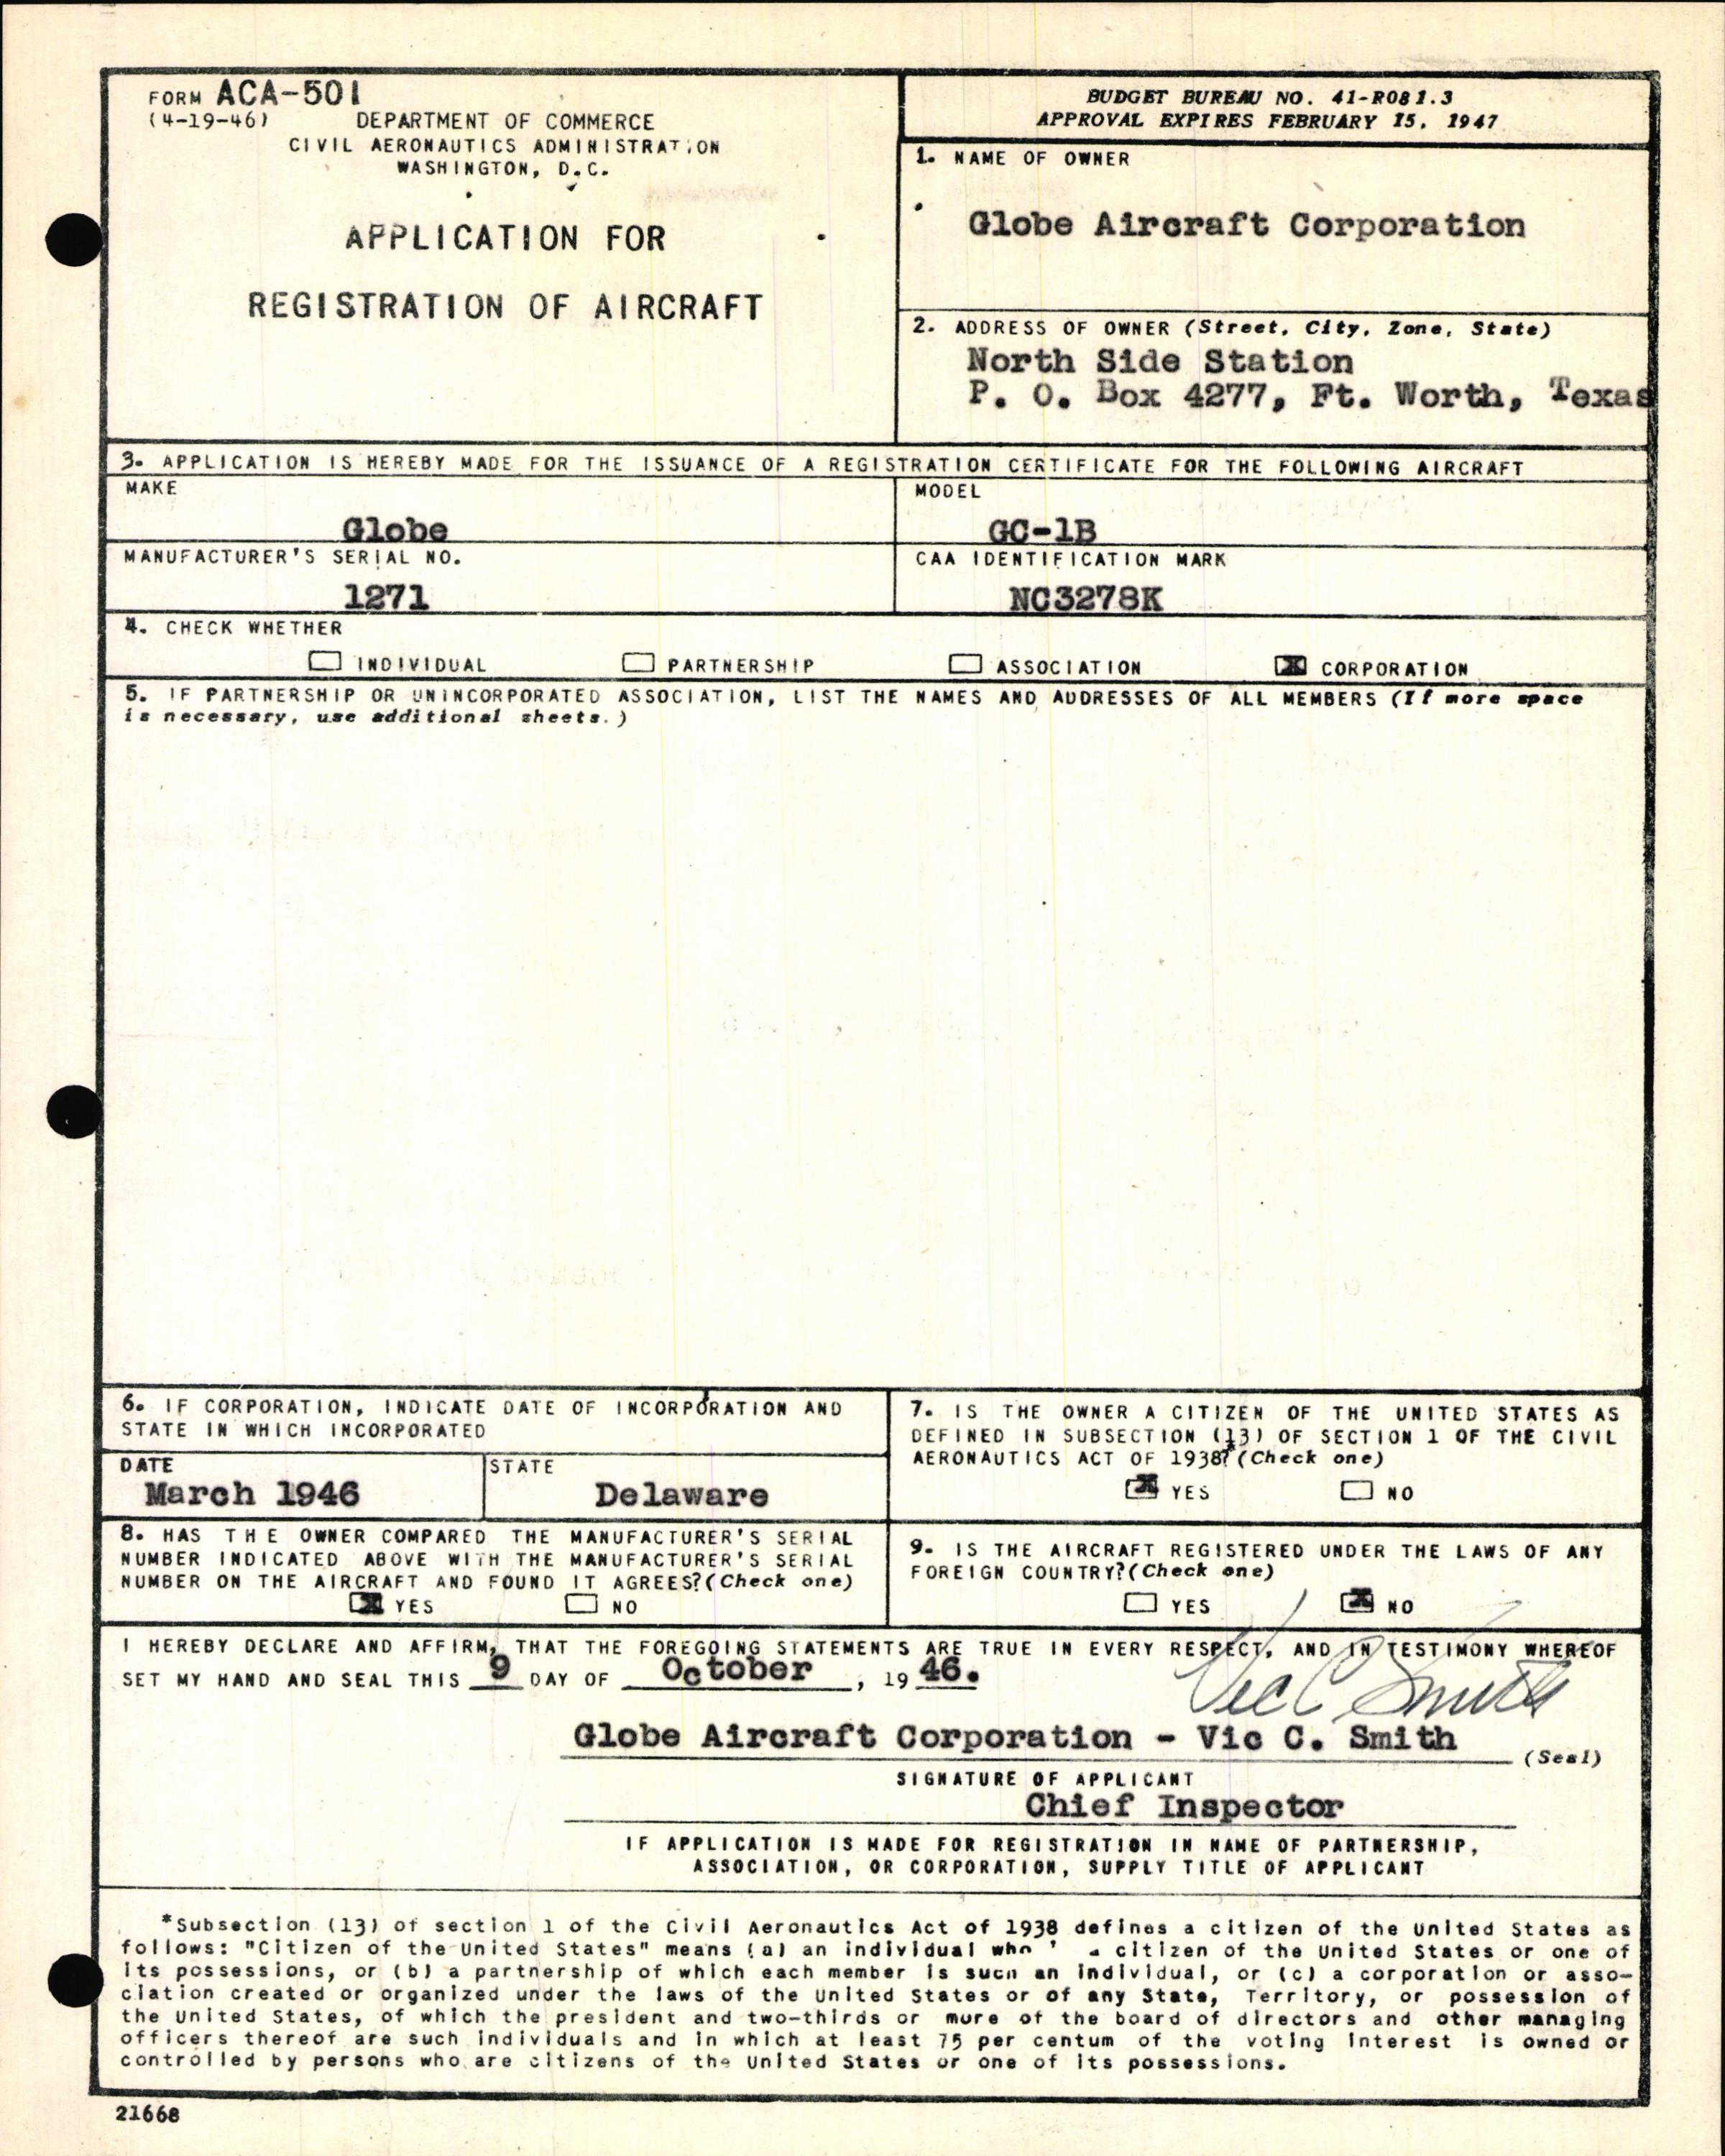 FORM ACA-501
(4-19-46)
DEPARTMENT OF COMMERCE
CIVIL AERONAUTICS ADMINISTRATION
WASHINGTON, D.C.
APPLICATION FOR
REGISTRATION OF AIRCRAFT
BUDGET BUREAU NO. 41-R081.3
APPROVAL EXPIRES FEBRUARY 15, 1947
1. NAME OF OWNER
Globe Aircraft Corporation
2. ADDRESS OF OWNER (Street, City, Zone, State)
North Side Station
P. O. Box 4277, Ft. Worth, Texas
3. APPLICATION IS HEREBY MADE FOR THE ISSUANCE OF A REGISTRATION CERTIFICATE FOR THE FOLLOWING AIRCRAFT
MAKE
Globe
MODEL
GC-1B
MANUFACTURER'S SERIAL NO.
1271
CAA IDENTIFICATION MARK
NC3278K
4. CHECK WHETHER
INDIVIDUAL PARTNERSHIP ASSOCIATION X CORPORATION
5. IF PARTNERSHIP OR UNINCORPORATED ASSOCIATION, LIST THE NAMES AND ADDRESSES OF ALL MEMBERS (If more space
is necessary, use additional sheets.)
6. IF CORPORATION, INDICATE DATE OF INCORPORATION AND
STATE IN WHICH INCORPORATED
DATE
March 1946
STATE
Delaware
7. IS THE OWNER A CITIZEN OF THE UNITED STATES AS
DEFINED IN SUBSECTION (13) OF SECTION 1 OF THE CIVIL
AERONAUTICS ACT OF 1938?* (Check one)
X YES NO
8. HAS THE OWNER COMPARED THE MANUFACTURER'S SERIAL
NUMBER INDICATED ABOVE WITH THE MANUFACTURER'S SERIAL
NUMBER ON THE AIRCRAFT AND FOUND IT AGREES? (Check one)
X YES NO
9. IS THE AIRCRAFT REGISTERED UNDER THE LAWS OF ANY
FOREIGN COUNTRY? (Check one)
YES X NO
I HEREBY DECLARE AND AFFIRM, THAT THE FOREGOING STATEMENTS ARE TRUE IN EVERY RESPECT, AND IN TESTIMONY WHEREOF
SET MY HAND AND SEAL THIS 9 DAY OF October, 19 46.
Vic C Smith
Globe Aircraft Corporation - Vic C. Smith
(Seal)
SIGNATURE OF APPLICANT
Chief Inspector
IF APPLICATION IS MADE FOR REGISTRATION IN NAME OF PARTNERSHIP,
ASSOCIATION, OR CORPORATION, SUPPLY TITLE OF APPLICANT
*Subsection (13) of section 1 of the Civil Aeronautics Act of 1938 defines a citizen of the United States as
follows: "Citizen of the United States" means (a) an individual who a citizen of the United States or one of
its possessions, or (b) a partnership of which each member is such an individual, or (c) a corporation or asso-
ciation created or organized under the laws of the United States or of any State, Territory, or possession of
the United States, of which the president and two-thirds or more of the board of directors and other managing
officers thereof are such individuals and in which at least 75 per centum of the voting interest is owned or
controlled by persons who are citizens of the United States or one of its possessions.
21668